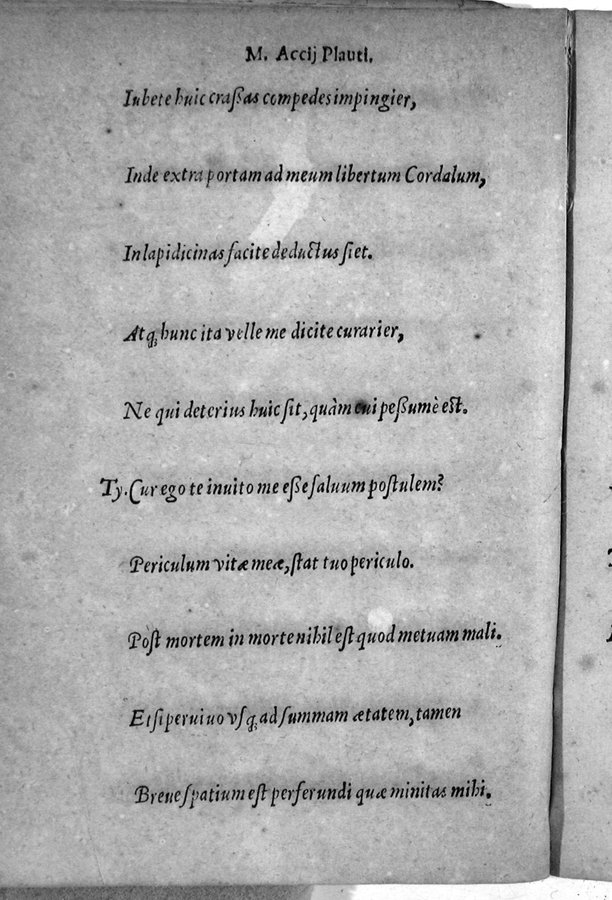 M. Accij Plauti.
Iubete huic craßas compedes impingier,
Inde extra portam ad meum libertum Cordalum,
In lapidicinas facite deductus ſiet.
Atq; hunc ita velle me dicite curarier,
Ne qui deterius huic ſit, quàm cui peßumè est.
Ty. Cur ego te inuito me eße ſaluum poſtulem?
Periculum vitæ meæ, ſtat tuo periculo.
Pòſt mortem in morte nihil eſt quod metuam mali.
Etſi peruiuo vſq; ad ſummam ætatem, tamen
Breue ſpatium eſt perferundi quæ minitas mihi.